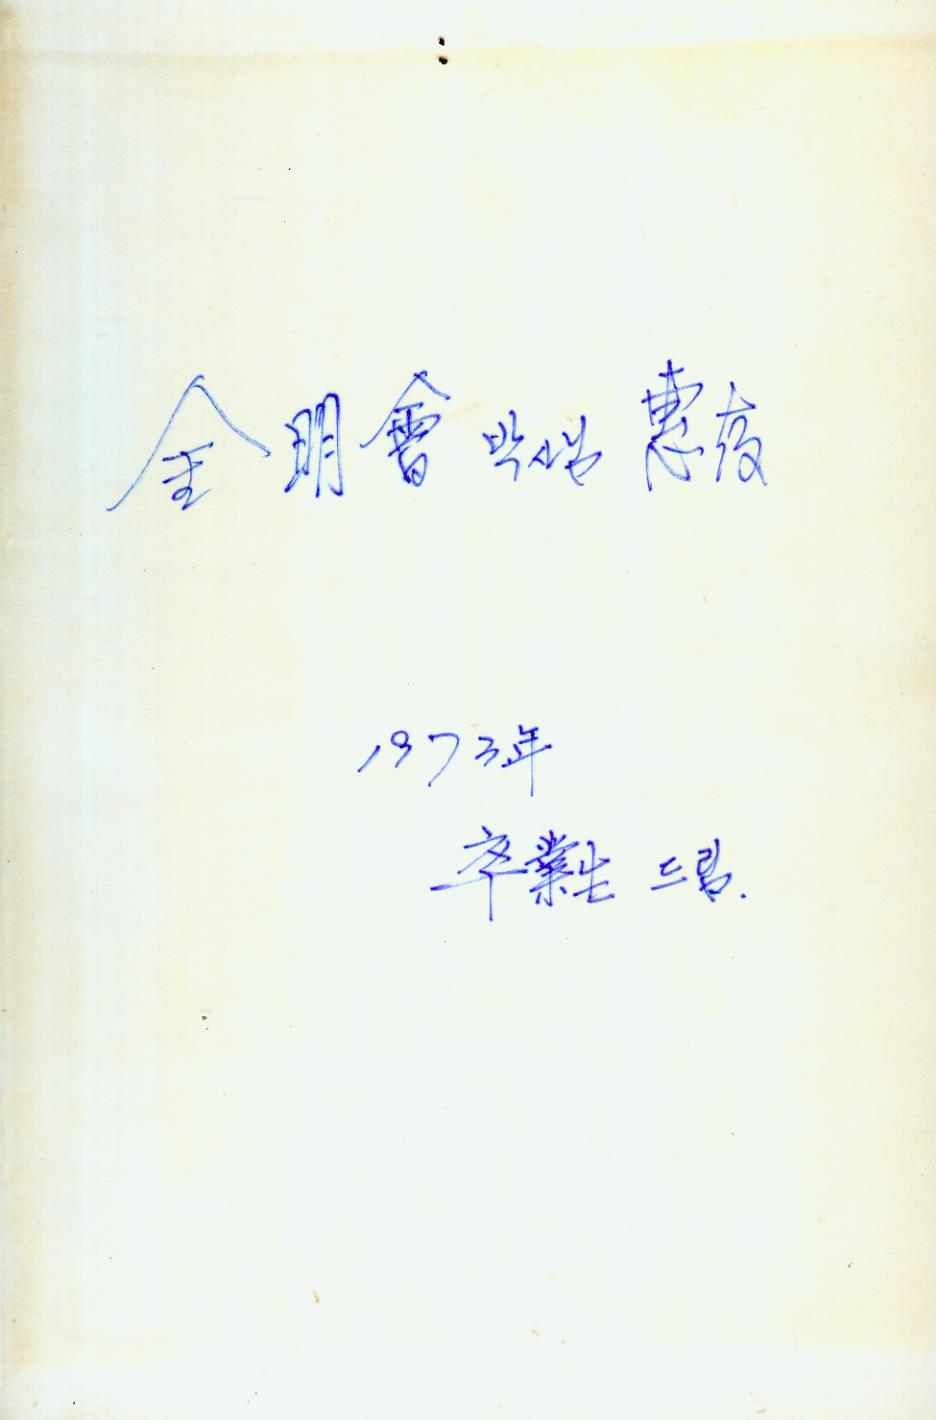 金明會 박사님 惠存
1973年
卒業生 드림.